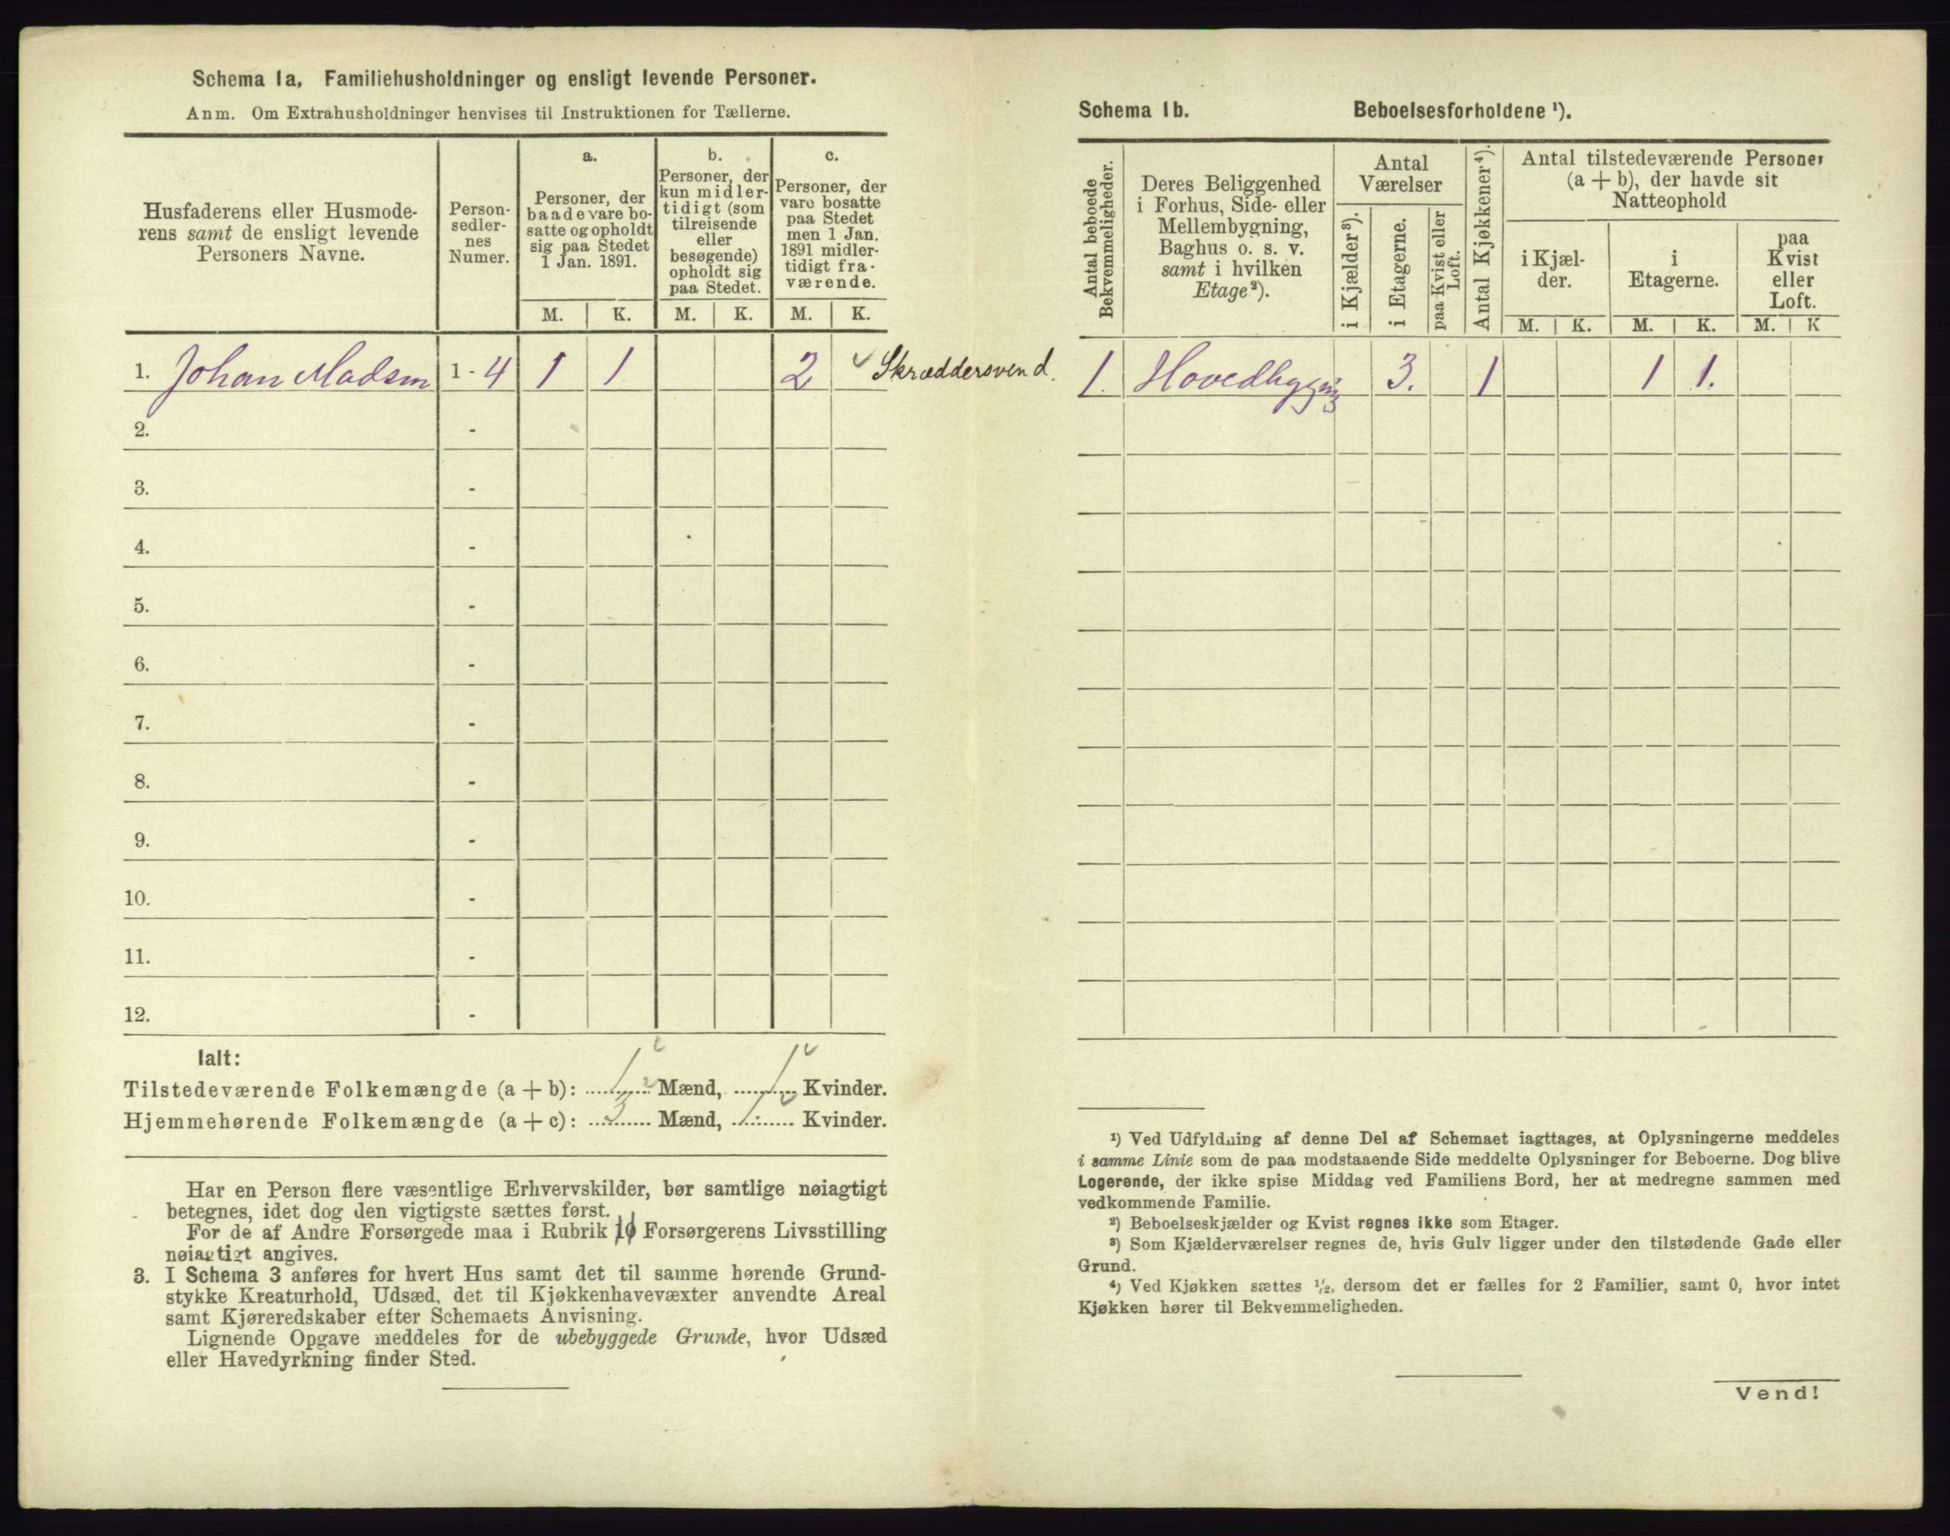 Schema 1a, Familiehusholdninger og ensligt levende Personer.
Anm. Om Extrahusholdninger henvises til Instruktionen for Tællerne.
Husfaderens eller Husmode-
rens samt de ensligt levende
Personers Navne.
Person-
sedler-
nes
Numer.
a.
Personer, der
baade vare bo-
satte og opholdt
sig paa Stedet
1 Jan. 1891.
b.
Personer, der
kun midler-
tidigt (som
tilreisende
eller
besøgende)
opholdt sig
paa Stedet.
c.
Personer, der
vare bosatte
paa Stedet
men 1 Jan.
1891 midler-
tidigt fra-
værende.
M. K. M. K. M. K.
1. Johan Madsen 1 - 4 1 1 2 Skræddersvend.
2. -
3. -
4. -
5. -
6. -
7. -
8. -
9. -
10. -
11. -
12. -
Ialt:
Tilstedeværende Folkemængde (a + b): 1 Mænd, 1 Kvinder.
Hjemmehørende Folkemængde (a + c): 3 Mænd, 1 Kvinder.
Har en Person flere væsentlige Erhvervskilder, bør samtlige nøiagtigt
betegnes, idet dog den vigtigste sættes først.
For de af Andre Forsørgede maa i Rubrik 11 Forsørgerens Livsstilling
nøiagtigt angives.
3. I Schema 3 anføres for hvert Hus samt det til samme hørende Grund-
stykke Kreaturhold, Udsæd, det til Kjøkkenhavevæxter anvendte Areal
samt Kjøreredskaber efter Schemaets Anvisning.
Lignende Opgave meddeles for de ubebyggede Grunde, hvor Udsæd
eller Havedyrkning finder Sted.
Schema 1b. Beboelsesforholdene ¹).
Antal beboede
Bekvemmeligheder.
Deres Beliggenhed
i Forhus, Side- eller
Mellembygning,
Baghus o. s. v.
samt i hvilken
Etage²).
Antal
Værelser
i Kjælder³).
i Etagerne.
paa Kvist eller
Loft.
Antal Kjøkkener⁴).
Antal tilstedeværende Personer
(a + b), der havde sit
Natteophold
i Kjæl-
der.
i
Etagerne.
paa
Kvist
eller
Loft.
M. K. M. K. M. K
1. Hovedbygging 3. 1 1 1.
¹) Ved Udfyldning af denne Del af Schemaet iagttages, at Oplysningerne meddeles
i samme Linie som de paa modstaaende Side meddelte Oplysninger for Beboerne. Dog blive
Logerende, der ikke spise Middag ved Familiens Bord, her at medregne sammen med
vedkommende Familie.
²) Beboelseskjælder og Kvist regnes ikke som Etager.
³) Som Kjælderværelser regnes de, hvis Gulv ligger under den tilstødende Gade eller
Grund.
⁴) Ved Kjøkken sættes ½, dersom det er fælles for 2 Familier, samt 0, hvor intet
Kjøkken hører til Bekvemmeligheden.
Vend!